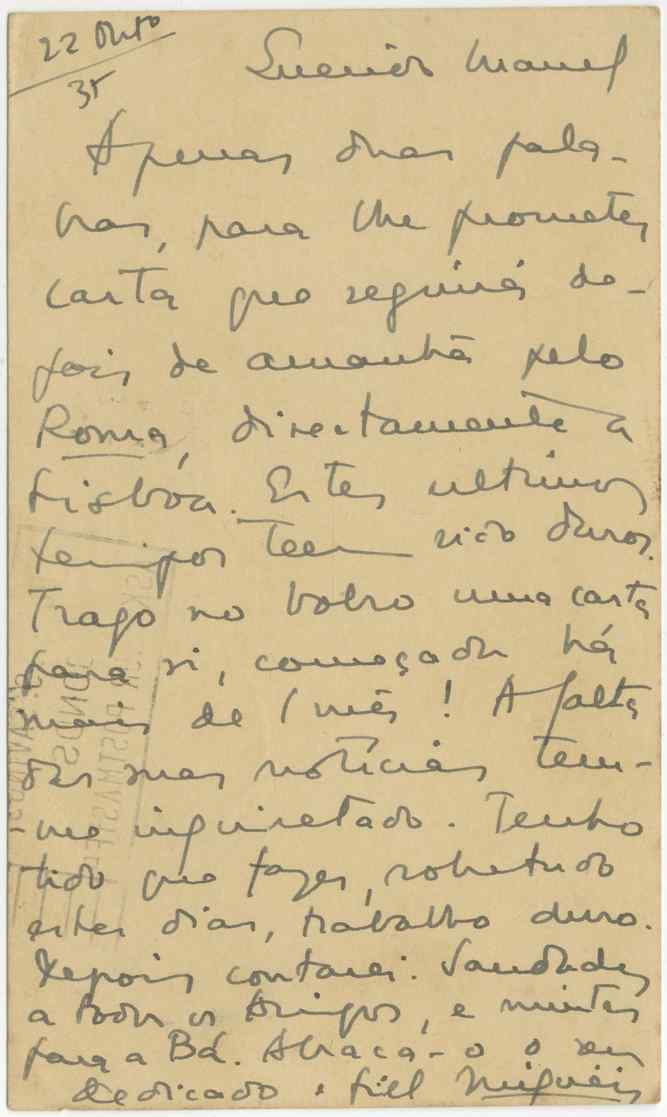 22 Outº
35
Querido Manuel
Apenas duas pala-
vras, para lhe prometer
carta que seguirá de-
pois de amanhã pelo
Roma, directamente a
Lisboa. Estes ultimos
tempos teem sido duros.
Trago no bolso uma carta
para si, começada há
mais de 1 mês! A falta
das suas notícias tem-
-me inquietado. Tenho
tido que fazer, sobretudo
estes dias, trabalho duro.
Depois contarei. Saudades
a todos os Amigos, e muitas
para a Bá. Abraça-o o seu
dedicado e fiel Miguéis